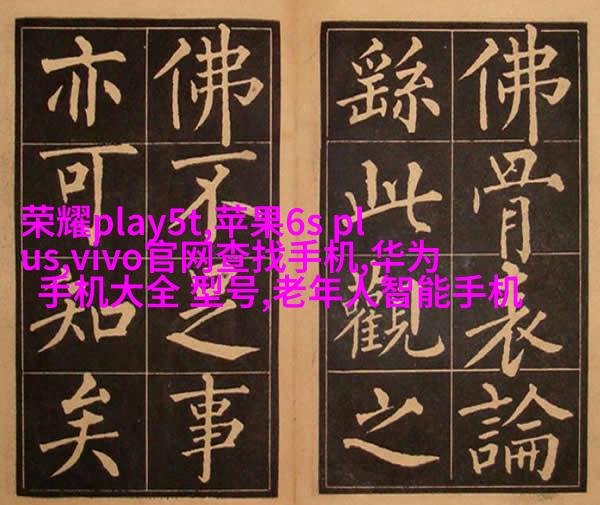 荣耀play5t,苹果6s pl
us,vivo官网查找手机,华为
手机大全 型号,老年人智能手机
佛骨衣論
繇此觀之
佛不足事
亦可知矣